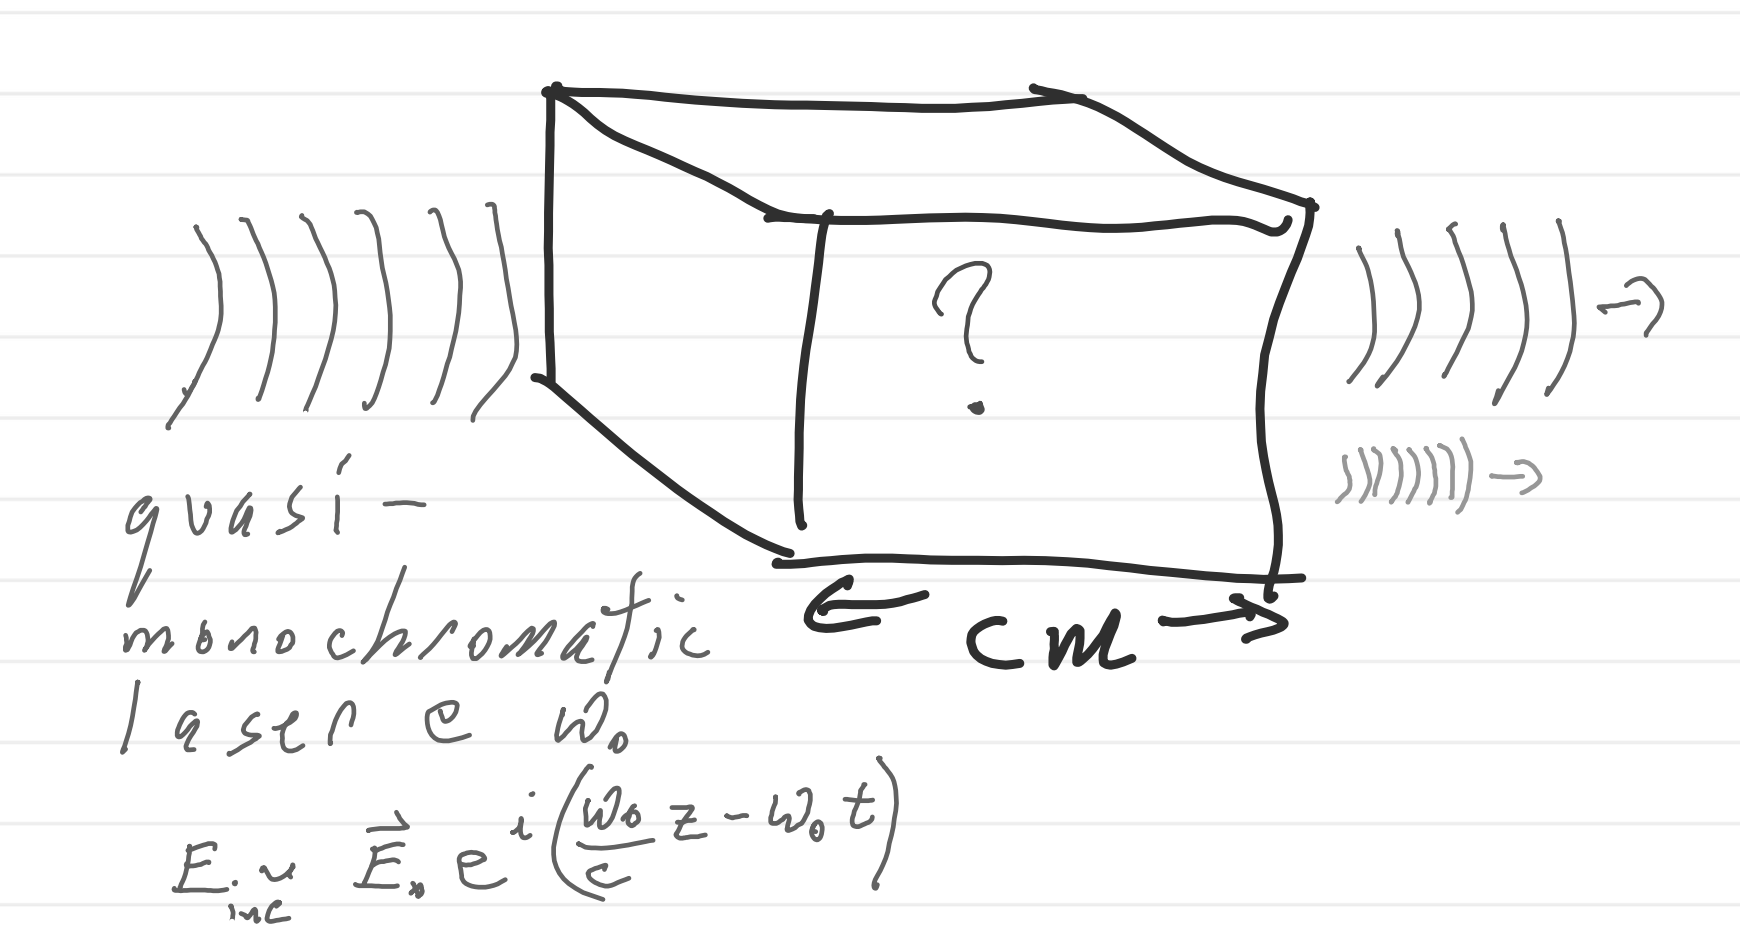 ?
← cm →
quasi-
monochromatic
laser @ ω₀
E_inc ~ E⃗₀ e^{i(ω₀/c z - ω₀t)}